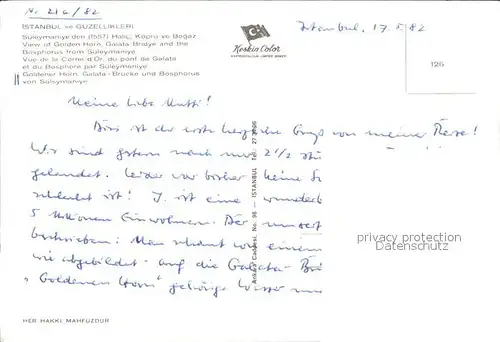 Nr. 216/82
İSTANBUL ve GÜZELLİKLERİ
Süleymaniye'den (1557) Haliç, Köprü ve Boğaz
View of Golden Horn, Galata Bridge and the
Bosphorus from Süleymaniye
Vue de la Corne d'Or, du pont de Galata
et du Bosphore par Süleymaniye
Goldener Horn, Galata-Brücke und Bosphorus
von Süleymaniye
Keskin Color
Istanbul, 17.5.82
126
Meine liebe Mutti!
Dies ist der erste herzliche Gruß von meiner Reise!
Wir sind gestern nach nur 2 1/2
gelandet. Leider war bisher keine
schlecht ist! I. ist eine wunderb
5 Millionen Einwohnern. Der
beschrieben: Man schaut von einem
wie abgebildet auf die Galata
"Goldenen Horn" gehörige
Ankara Caddesi, No. 98 — İSTANBUL Tel.: 27
privacy protection
Datenschutz
HER HAKKI MAHFUZDUR